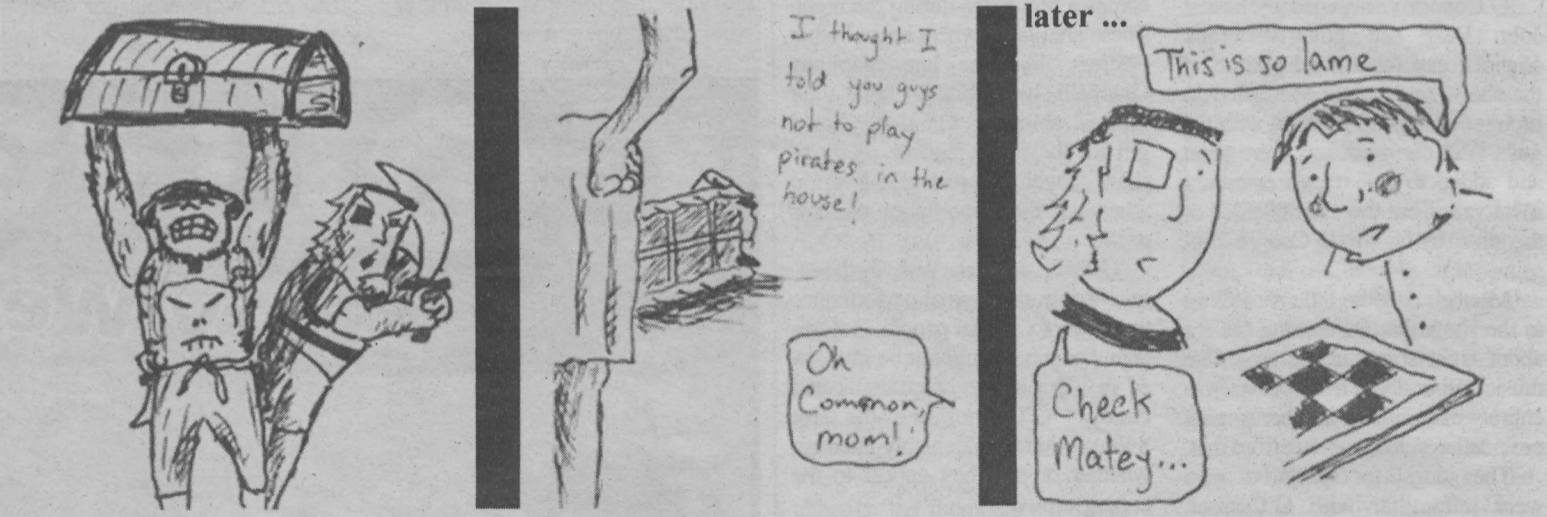 I thought I
told you guys
not to play
pirates in the
house!
Oh
Common,
mom!
later ...
This is so lame
Check
Matey...